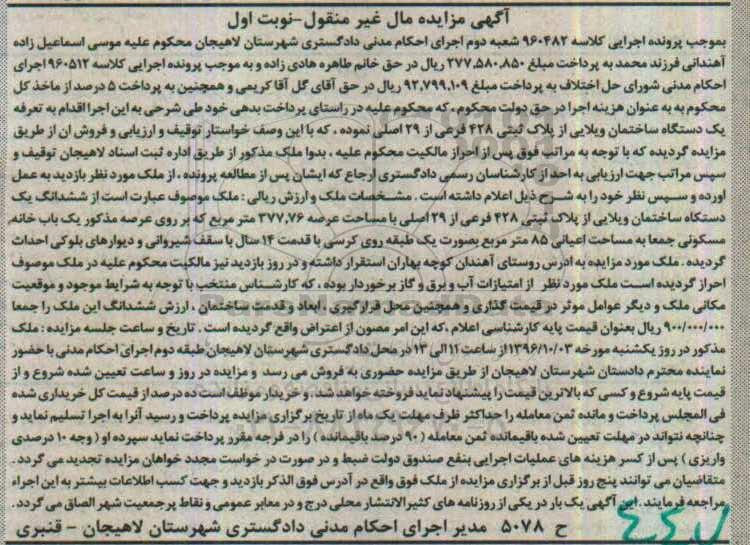 آگهی مزایده مال غیر منقول-نوبت اول
بموجب پرونده اجرایی کلاسه ۹۶۰۴۸۲ شعبه دوم اجرای احکام مدنی دادگستری شهرستان لاهیجان محکوم علیه موسی اسماعیل زاده
آهندانی فرزند محمد به پرداخت مبلغ ۲۷۷،۵۸۰،۸۵۰ ریال در حق خانم طاهره هادی زاده و به موجب پرونده اجرایی کلاسه ۹۶۰۵۱۲ اجرای
احکام مدنی شورای حل اختلاف به پرداخت مبلغ ۹۲،۷۹۹،۱۰۹ ریال در حق آقای گل آقا کریمی و همچنین به پرداخت ۵ درصد از ماخذ کل
محکوم به به عنوان هزینه اجرا در حق دولت محکوم ، که محکوم علیه در راستای پرداخت بدهی خود طی شرحی به این اجرا اقدام به تعرفه
یک دستگاه ساختمان ویلایی از پلاک ثبتی ۴۲۸ فرعی از ۲۹ اصلی نموده ، که با این وصف خواستار توقیف و ارزیابی و فروش ان از طریق
مزایده گردیده که با توجه به مراتب فوق پس از احراز مالکیت محکوم علیه ، بدوا ملک مذکور از طریق اداره ثبت اسناد لاهیجان توقیف و
سپس مراتب جهت ارزیابی به احد از کارشناسان رسمی دادگستری ارجاع که ایشان پس از مطالعه پرونده ، از ملک مورد نظر بازدید به عمل
اورده و سپس نظر خود را به شرح ذیل اعلام داشته است . مشخصات ملک و ارزش ریالی : ملک موصوف عبارت است از ششدانگ یک
دستگاه ساختمان ویلایی از پلاک ثبتی ۴۲۸ فرعی از ۲۹ اصلی با مساحت عرصه ۳۷۷،۷۶ متر مربع که بر روی عرصه مذکور یک باب خانه
مسکونی جمعا به مساحت اعیانی ۸۵ متر مربع بصورت یک طبقه روی کرسی با قدمت ۱۴ سال با سقف شیروانی و دیوارهای بلوکی احداث
گردیده . ملک مورد مزایده به ادرس روستای آهندان کوچه بهاران استقرار داشته و در روز بازدید نیز مالکیت محکوم علیه در ملک موصوف
احراز گردیده است ملک مورد نظر از امتیازات آب و برق و گاز برخوردار بوده ، که کارشناس منتخب با توجه به شرایط موجود و موقعیت
مکانی ملک و دیگر عوامل موثر در قیمت گذاری و همچنین محل قرارگیری ، ابعاد و قدمت ساختمان ، ارزش ششدانگ این ملک را جمعا
۹۰۰/۰۰۰/۰۰۰ ریال بعنوان قیمت پایه کارشناسی اعلام ، که این امر مصون از اعتراض واقع گردیده است . تاریخ و ساعت جلسه مزایده : ملک
مذکور در روز یکشنبه مورخه ۱۳۹۶/۱۰/۰۳ از ساعت ۱۱ الی ۱۳ در محل دادگستری شهرستان لاهیجان طبقه دوم اجرای احکام مدنی با حضور
نماینده محترم دادستان شهرستان لاهیجان از طریق مزایده حضوری به فروش می رسد و مزایده در روز و ساعت تعیین شده شروع و از
قیمت پایه شروع و کسی که بالاترین قیمت را پیشنهاد نماید فروخته خواهد شد . و خریدار موظف است ده درصد از قیمت کل خریداری شده
فی المجلس پرداخت و مانده ثمن معامله را حداکثر ظرف مهلت یک ماه از تاریخ برگزاری مزایده پرداخت و رسید آنرا به اجرا تسلیم نماید و
چنانچه نتواند در مهلت تعیین شده باقیمانده ثمن معامله ( ۹۰ درصد باقیمانده ) را در فرجه مقرر پرداخت نماید سپرده او ( وجه ۱۰ درصدی
واریزی ) پس از کسر هزینه های عملیات اجرایی بنفع صندوق دولت ضبط و در صورت در خواست مجدد خواهان مزایده تجدید می گردد .
متقاضیان می توانند پنج روز قبل از برگزاری مزایده از ملک فوق واقع در آدرس فوق الذکر بازدید و جهت کسب اطلاعات بیشتر به این اجراء
مراجعه فرمایند . این آگهی یک بار در یکی از روزنامه های کثیرالانتشار محلی درج و در معابر عمومی و نقاط پرجمعیت شهر الصاق می گردد .
ح ۵۰۷۸ مدیر اجرای احکام مدنی دادگستری شهرستان لاهیجان - قنبری